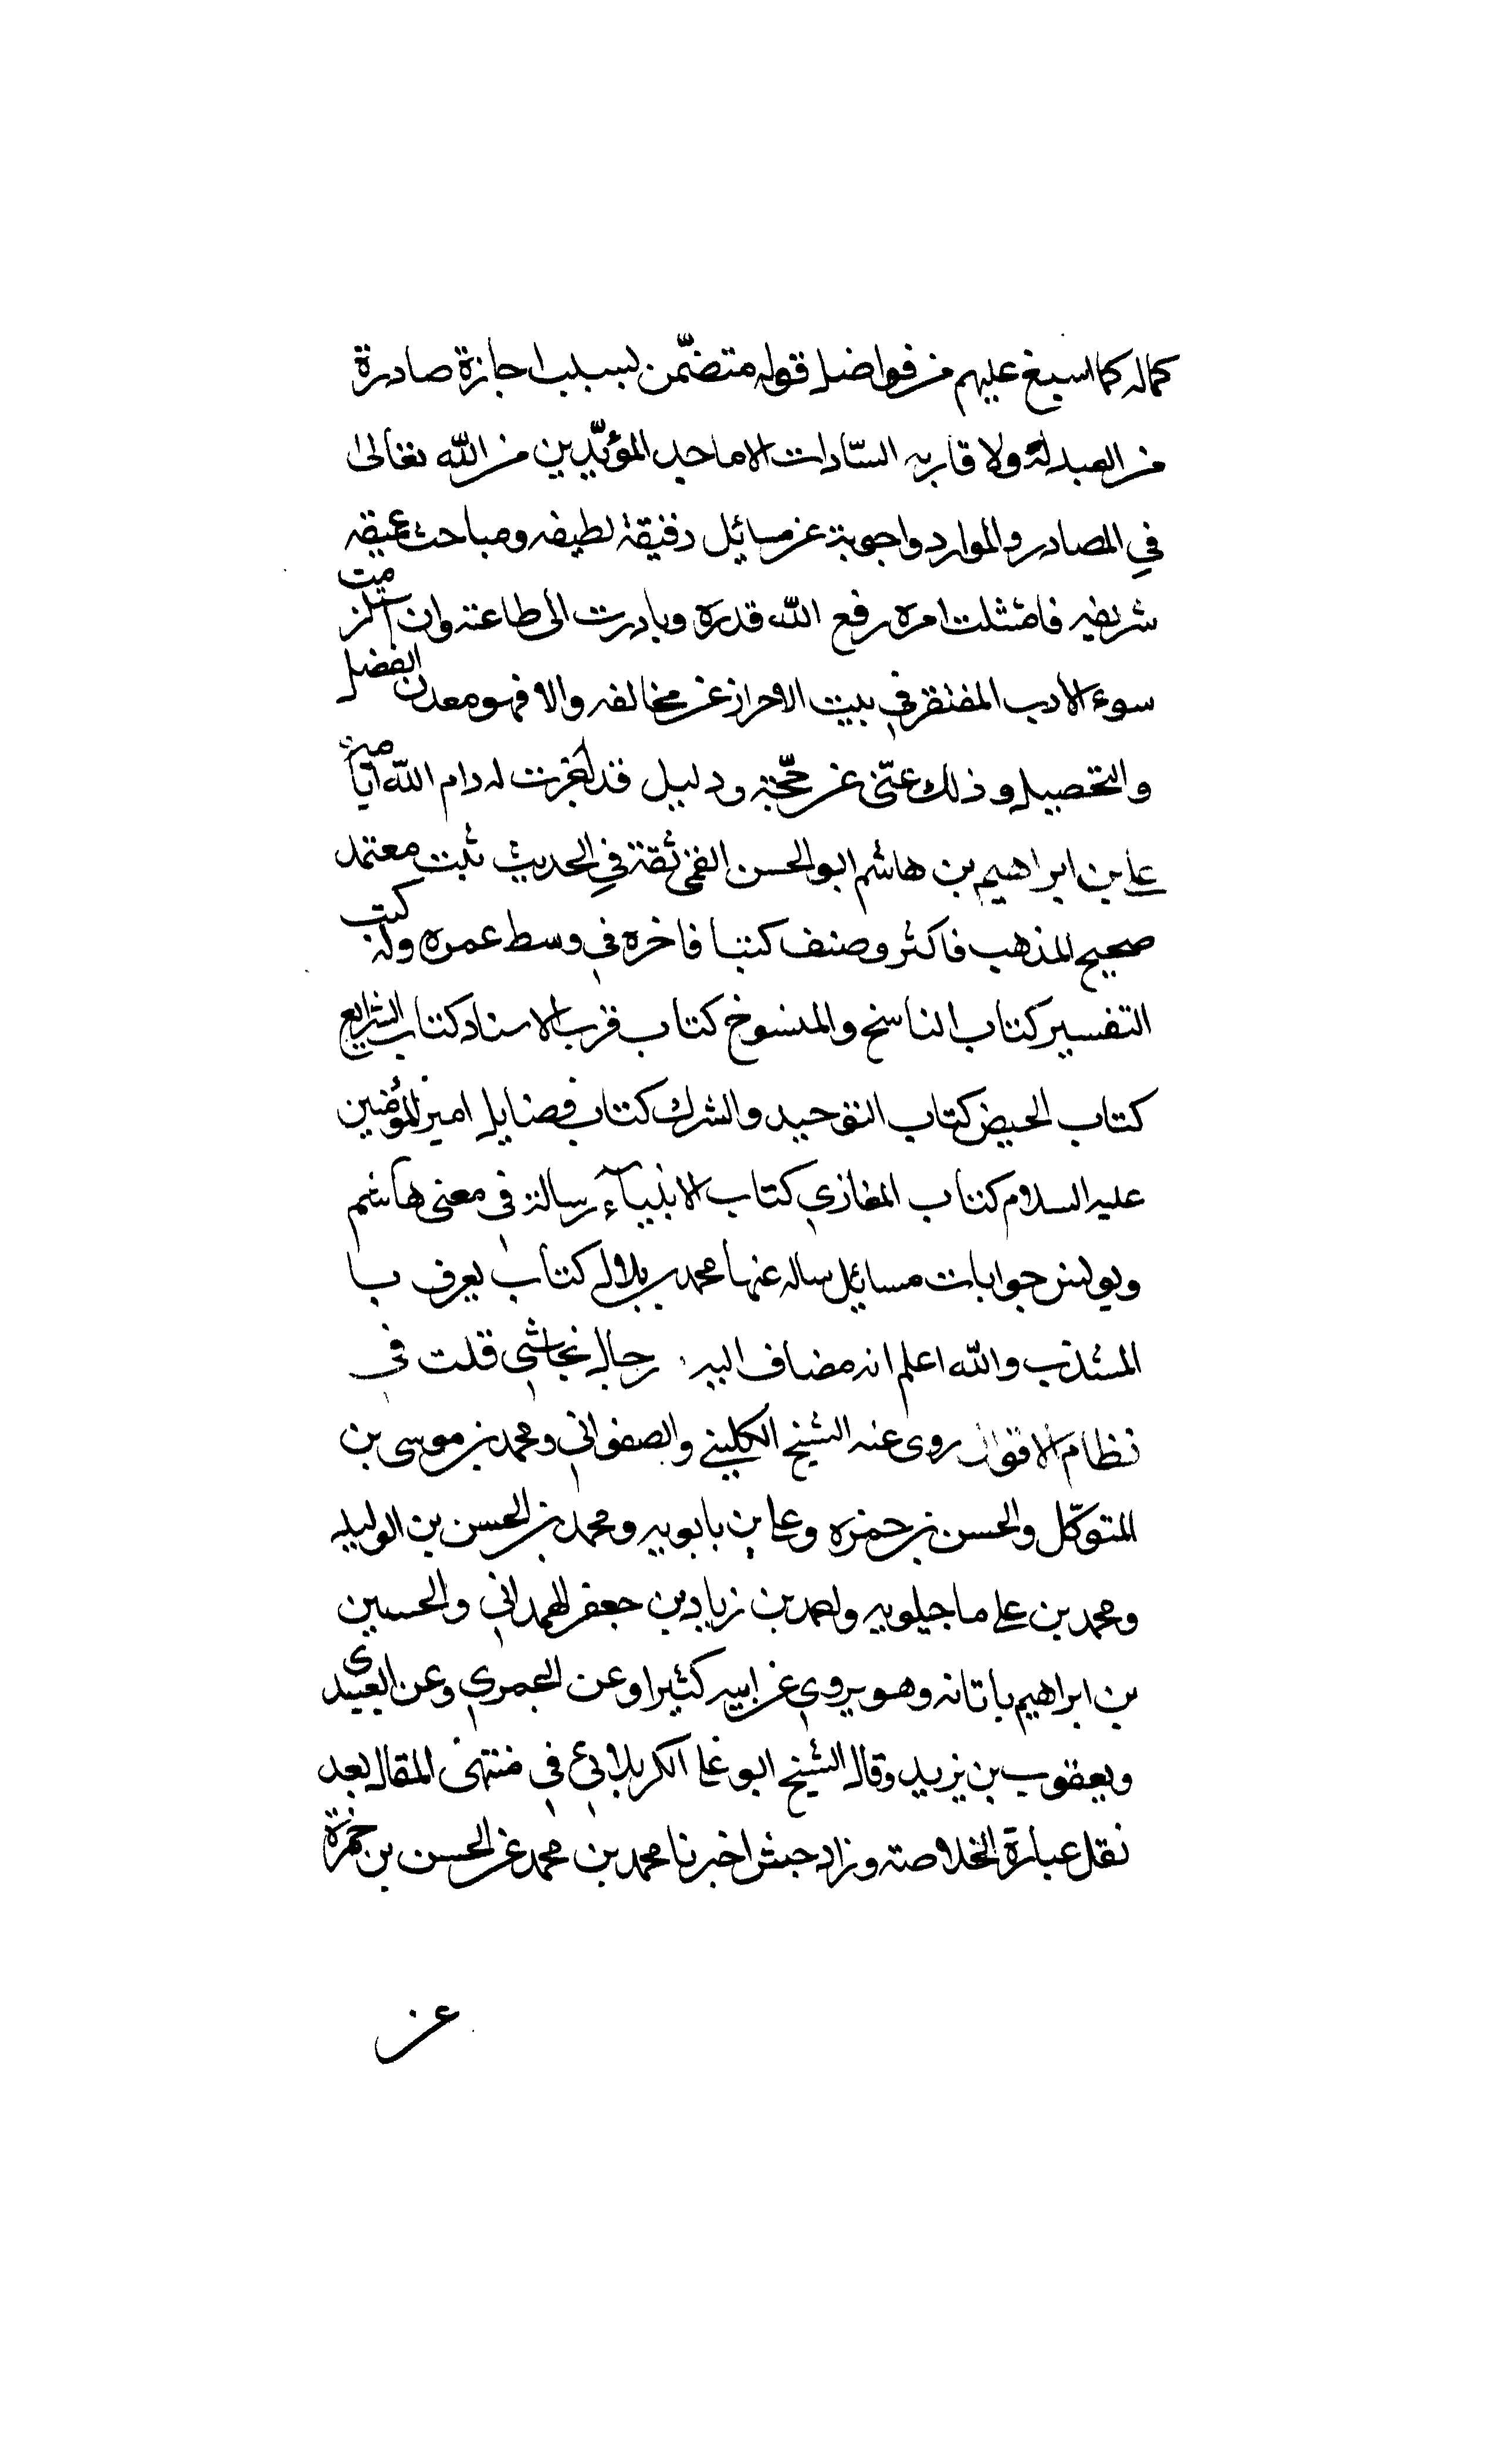 كماله كما اسبغ عليهم من فواضل قوله متضمّن لسبب اجازة صادرة
من العبد له ولاقاربه السّادات الاماجد المؤيّدين من الله تعالى
في المصادر والموارد واجوبة عن مسائل دقيقة لطيفه ومباحث عميقه
شريفه فامتثلت امره رفع الله قدره وبادرت الى طاعته وان استلزمت
سوء الادب المفتقر في بيت الاحراز عن مخالفه والا فهو معدن الفضل
والتحصيل و ذلك عنّي حجّة ودليل فقد اجزت له دام الله ايامه
علي بن ابراهيم بن هاشم ابو الحسن القمي ثقة في الحديث ثبت معتمد
صحيح المذهب فاكثر وصنف كتبا فاخره في وسط عمره وله كتب
التفسير كتاب الناسخ والمنسوخ كتاب قرب الاسناد كتاب الشرايع
كتاب الحيض كتاب التوحيد والشرك كتاب فضايل امير المؤمنين
عليه السلام كتاب المغازي كتاب الانبيآء رسالة في معنى هاشم
ويونس جوابات مسائيل ساله عنها محمد بن بلال كتاب يعرف با
المشذب والله اعلم انه مضاف اليه رجال نجاشي قلت في
نظام الاقوال روى عنه الشيخ الكليني والصفواني ومحمد بن موسى بن
المتوكّل والحسن بن حمزه وعلي بن بابويه ومحمد بن الحسن بن الوليد
ومحمد بن علي ماجيلويه واحمد بن زياد بن جعفر الهمداني والحسين
بن ابراهيم باتانه وهو يروي عن ابيه كثيرا وعن العمري وعن العبيدى
ويعقوب بن يزيد وقال الشيخ ابو علي الكربلائي في منتهى المقال بعد
نقل عبارة الخلاصة وزاد جش اخبرنا محمد بن محمد عن الحسن بن حمزة
عن